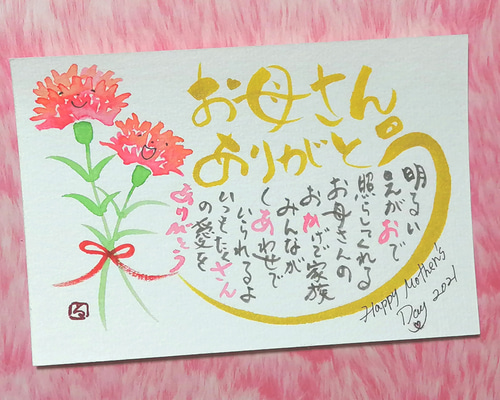 お母さん
ありがとう
明るい
えがおで
照らしてくれる
お母さんの
おかげで家族
みんなが
しあわせで
いられるよ
いつもたくさん
の愛を
ありがとう
Happy Mother's
Day 2021